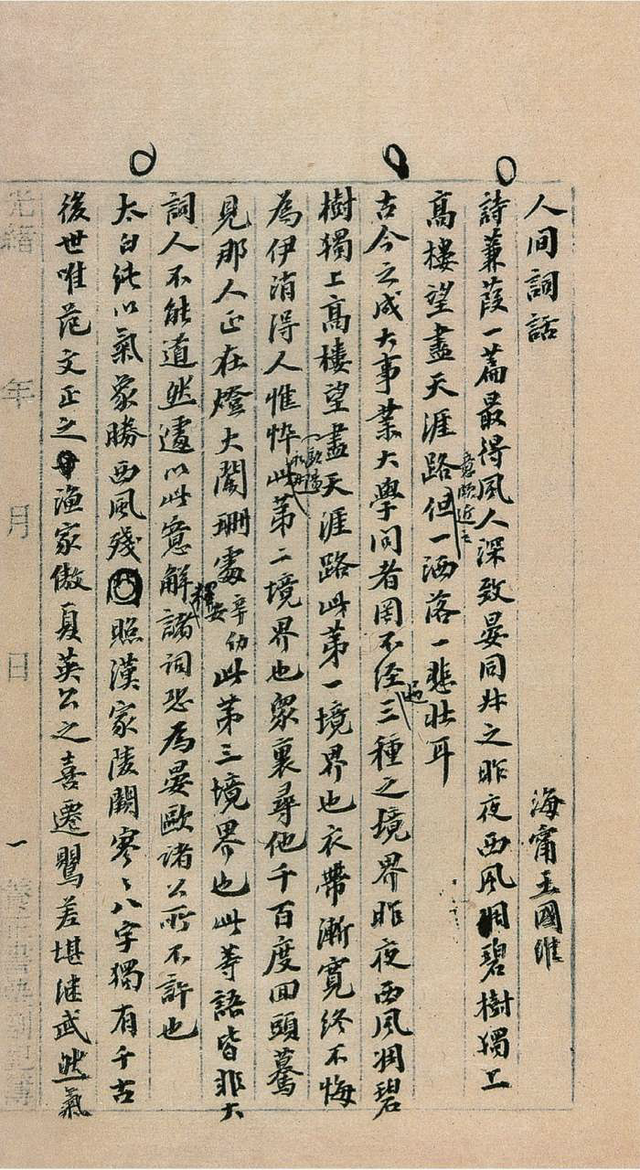 人间詞話 海甯王國維
詩蒹葭一篇最得風人深致晏同叔之昨夜西風凋碧樹獨上
高樓望盡天涯路意頗近之但一洒落一悲壯耳
古今之成大事業大學問者罔不經過三種之境界昨夜西風凋碧
樹獨上高樓望盡天涯路此第一境界也衣帶漸寬終不悔
為伊消得人憔悴歐陽永叔此第二境界也眾裏尋他千百度回頭驀
見那人正在燈火闌珊處辛幼安此第三境界也此等語皆非大
詞人不能道然遽以此意解諸詞恐為晏歐諸公所不許也
太白純以氣象勝西風殘照漢家陵闕寥〻八字獨有千古
後世唯范文正之漁家傲夏英公之喜遷鶯差堪繼武然氣
光緒 年 月 日 一 養正書塾劄記簿